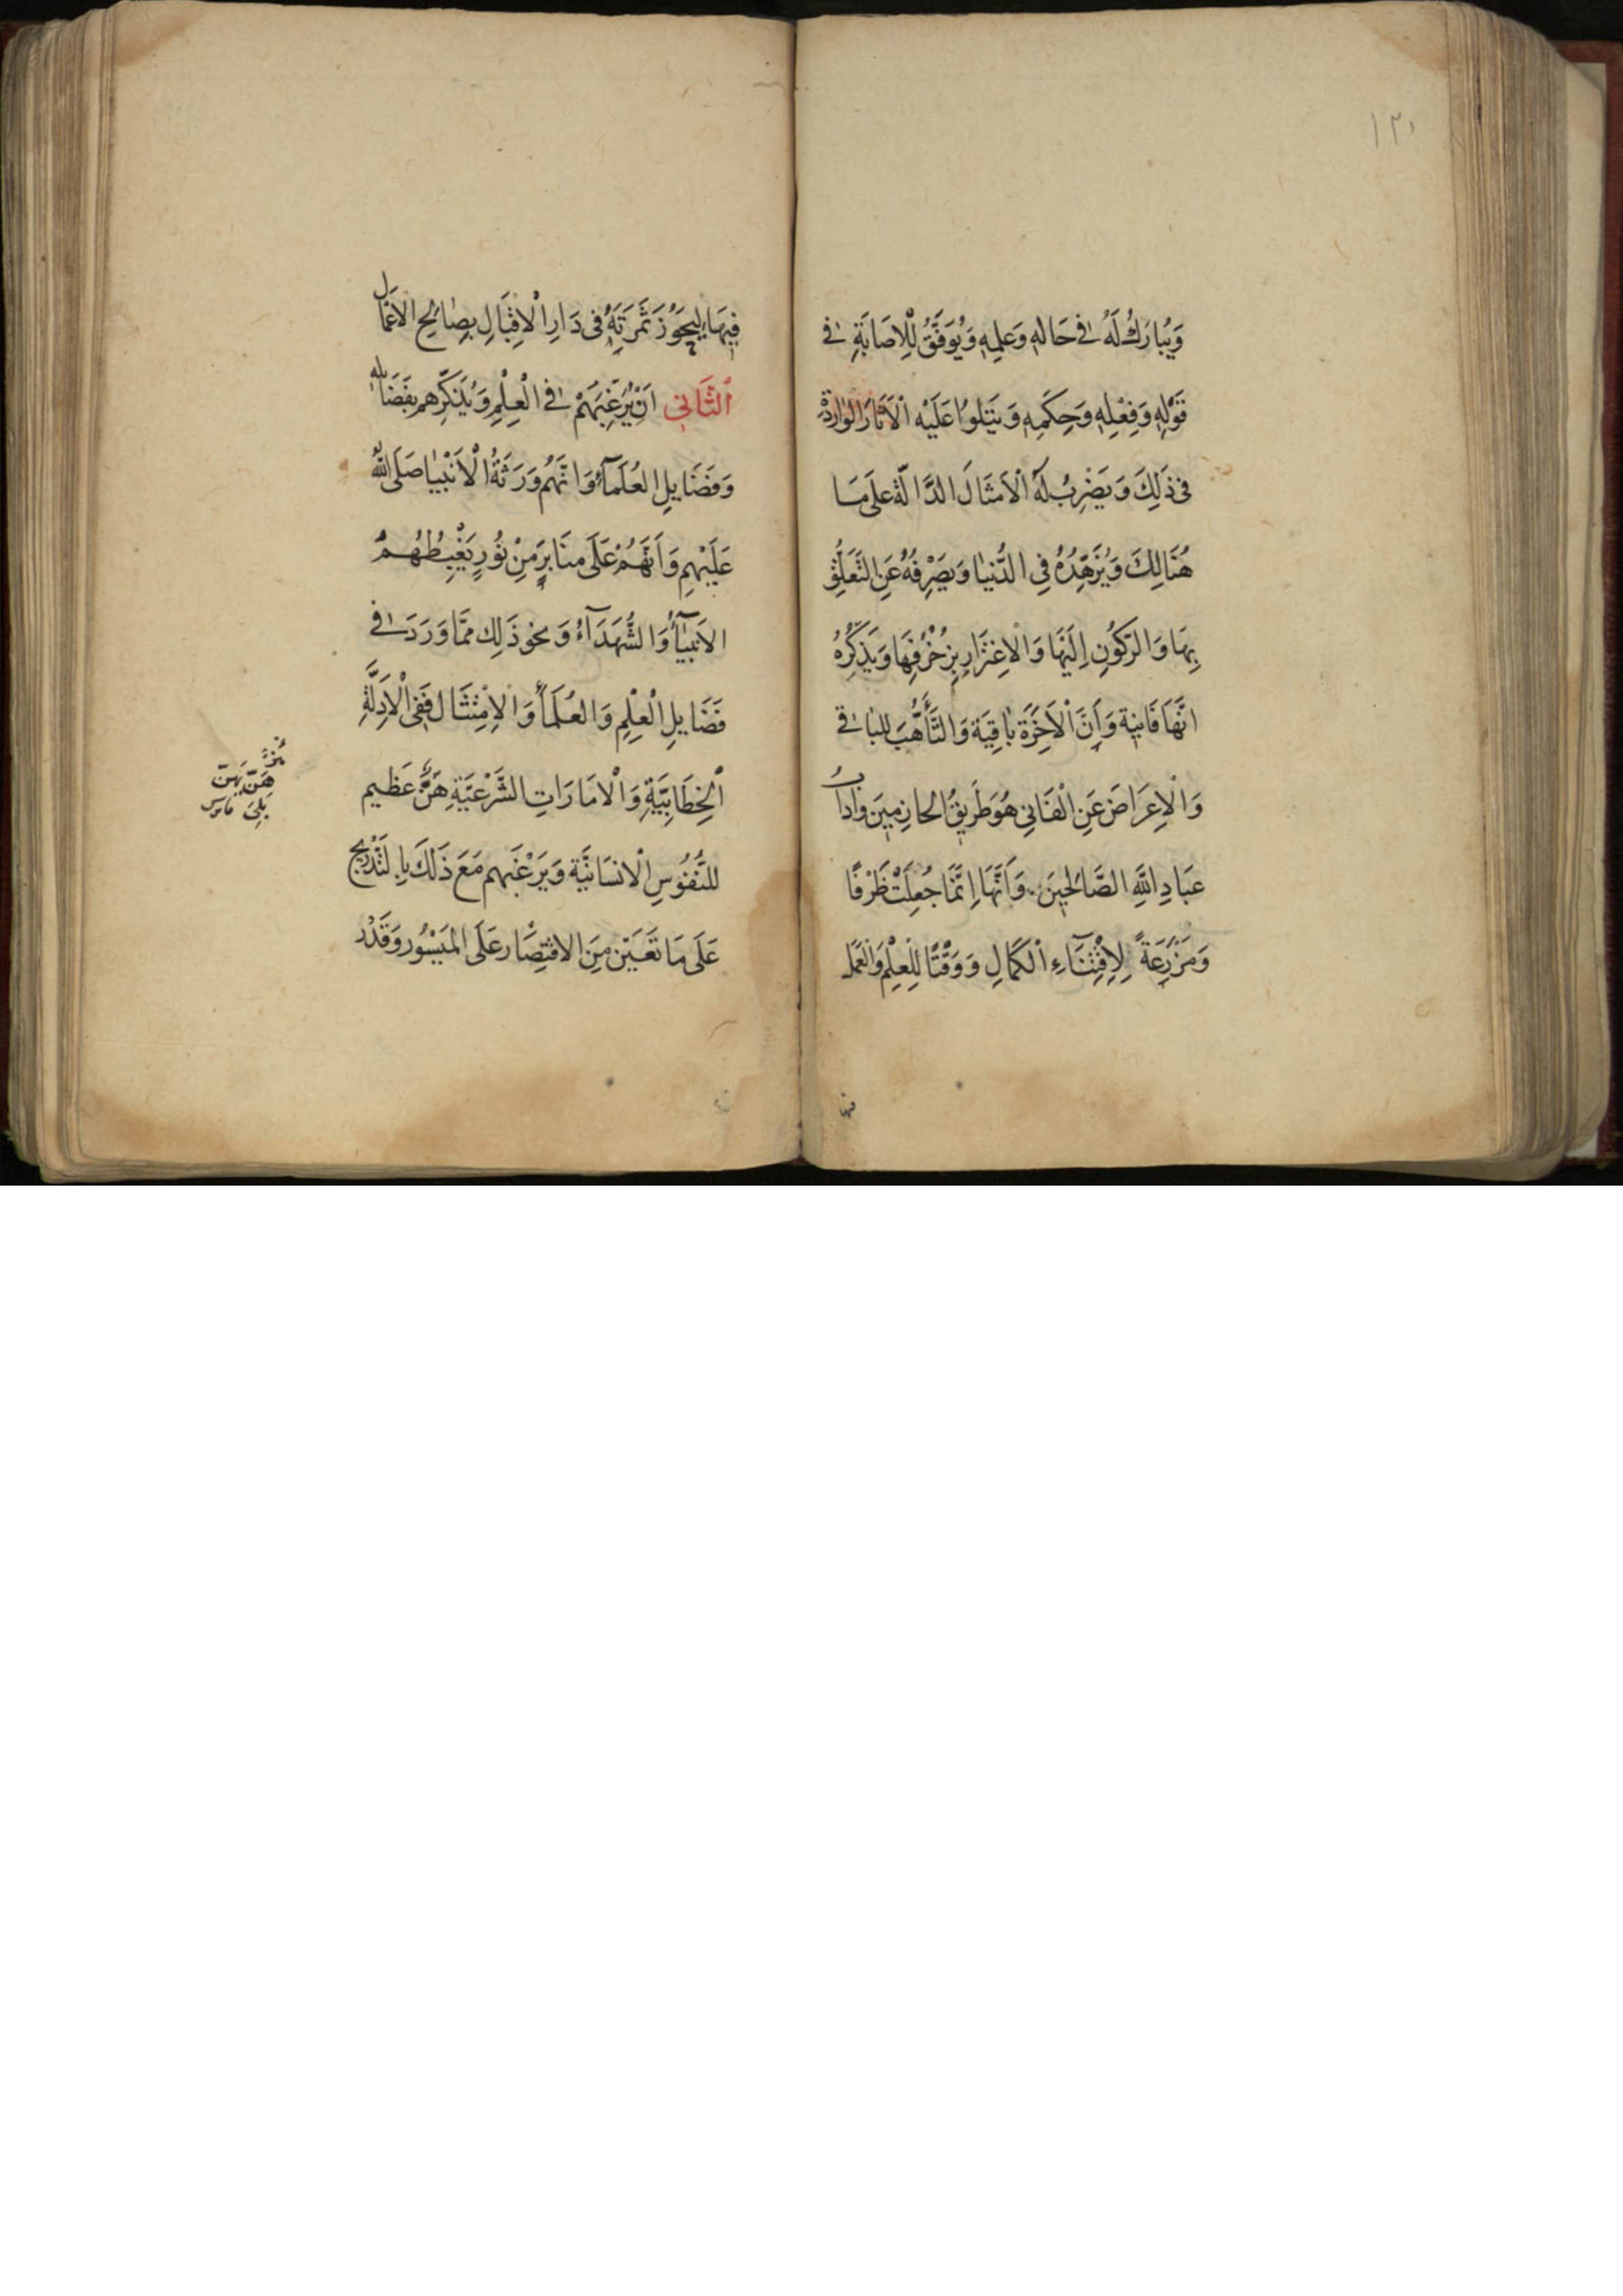 ١٢١
وَيُبارَكُ لَهُ فى حَالِهِ وَعِلمِهِ وَيُوَفَّقُ لِلْاِصَابَةِ فى
قَوْلِهِ وَفِعْلِهِ وَحِكَمِهِ وَيَتْلُوا عَلَيْهِ الْاَثَارَ الوَارِدَة
فى ذَلِكَ وَيَضْرِبُ لَهُ الْاَمثَالَ الدَّالَّة عَلَى مَا
هُنَالِكَ وَيُزَهِّدُهُ فِى الدُّنيَا وَيَصْرِفُهُ عَنِ التَّعَلُّقِ
بِهَا وَالرّكُونِ اِلَيْهَا وَالْاِغتِرَارِ بِزُخْرُفِهَا وَيُذَكِّرُهُ
انَّهَا فَانِيَة وَاَنَّ الْاَخِرَة بَاقِيَة وَالتَّأَهُّبَ لِلبَاقى
وَالْاِعرَاضَ عَنِ الْفَانِى هُوَ طَرِيقُ الحازِمِينَ وَدَابُ
عِبَادِ اللَّهِ الصَّالِحِينَ. وَاَنَّهَا اِنَّمَا جُعِلَتْ ظَرْفًا
وَمَزْرَعَةً لِاِقْتِنَآءِ الْكَمَالِ وَوَقْتًا لِلعِلْمِ وَالْعَمَل
فيها
فِيهَا لِيَحُوزَ ثَمَرَتَهُ فى دَارِ الْاِقْبَالِ بِصَالِحِ الاَعْمَال
اَلثَّانِى اَنْ يُرَغِّبَهُمْ فى الْعِلْمِ وَيُذَكِّرهم بِفَضَائِلِهِ
وَفَضَايِلِ العُلَمَآءِ وَانَّهُم وَرَثَةُ الْاَنْبِيَا صَلَّى اللّهُ
عَلَيْهِم وَاَنَّهُمْ عَلَى مَنَابِرَ مِنْ نُورٍ يَغْبِطُهُمْ
الاَنبِيَآءُ وَالشُّهَدَآءُ وَنحو ذَلِك مِمَّا وَرَدَ فى
فَضَايِلِ الْعِلْمِ وَالعُلَمَاءِ وَالْاِمْتِثَال فَفِى الْاَدِلَّةِ
اَلْخِطَابِيَّةِ وَالْاَمَارَاتِ الشَّرْعِيَّةِ هَزٌّ عَظيم
لِلنُّفُوسِ الْانسَانِيَّة وَيُرَغِّبهم مَعَ ذَلَكَ بِالتَّدْرِيج
عَلَى مَا تَعَيَّن مِنَ الاقتِصَار عَلَى المَيْسُور وَقَدْر